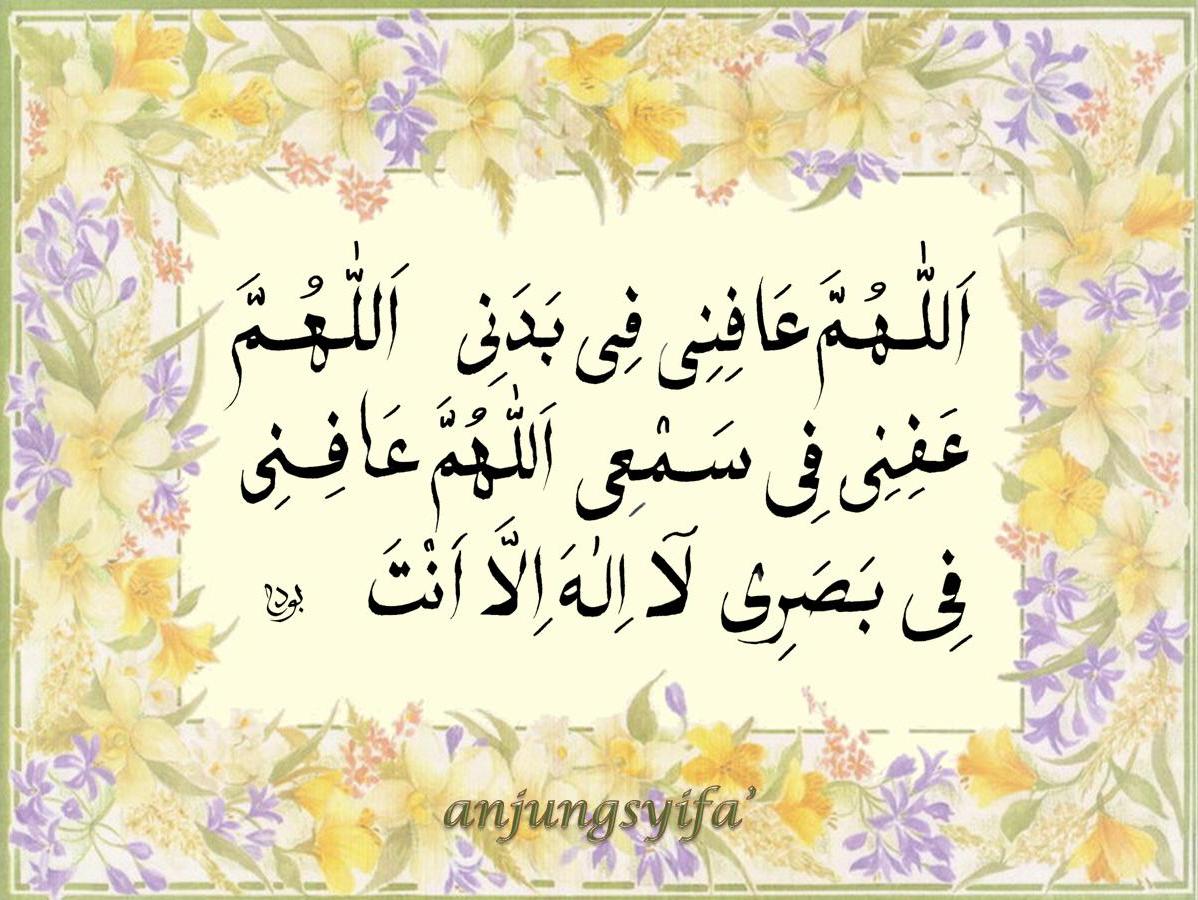 اَللّٰهُمَّ عَافِنِى فِى بَدَنِى اَللّٰهُمَّ
عَفِنِى فِى سَمْعِى اَللّٰهُمَّ عَافِنِى
فِى بَصَرِى لَآ اِلٰهَ اِلَّا اَنْتَ
anjungsyifa’